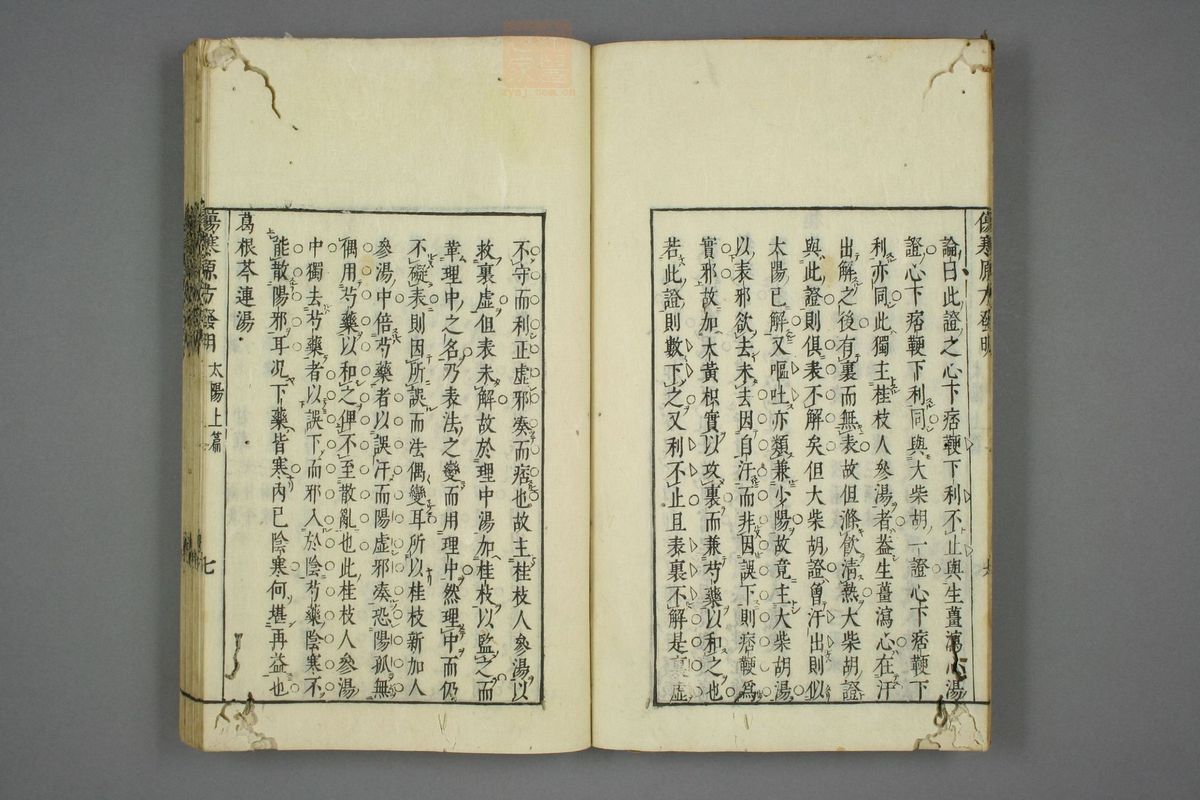 傷寒原方發明
論曰此證之心下痞鞕下利不止與生薑瀉心湯
證心下痞鞕下利同與大柴胡一證心下痞鞕下
利亦同此獨主桂枝人參湯者蓋生薑瀉心在汗
出解之後有裏而無表故但滌飮淸熱大柴胡證
與此證則俱表不解矣但大柴胡證曾汗出則似
太陽已解又嘔吐亦類兼少陽故竟主大柴胡湯
以表邪欲去未去因自汗而非因誤下則痞鞕爲
實邪故加大黄枳實以攻裏而兼芍藥以和之也
若此證則數下之又利不止且表裏不解是裏虛
不守而利正虛邪湊而痞也故主桂枝人參湯以
救裏虛但表未解故於理中湯加桂枝以監之而
韋理中之名乃表法之變而用理中然理中而仍
不礙表則因所誤而法偶變耳所以桂枝新加人
參湯中倍芍藥者以誤汗而陽虛邪湊恐陽孤無
偶用芍藥以和之俾不至散亂也此桂枝人參湯
中獨去芍藥者以誤下而邪入於陰芍藥陰寒不
能散陽邪耳况下藥皆寒內已陰寒何堪再益也
葛根芩連湯
傷寒原方發明
太陽上篇
七
zysj.com.cn